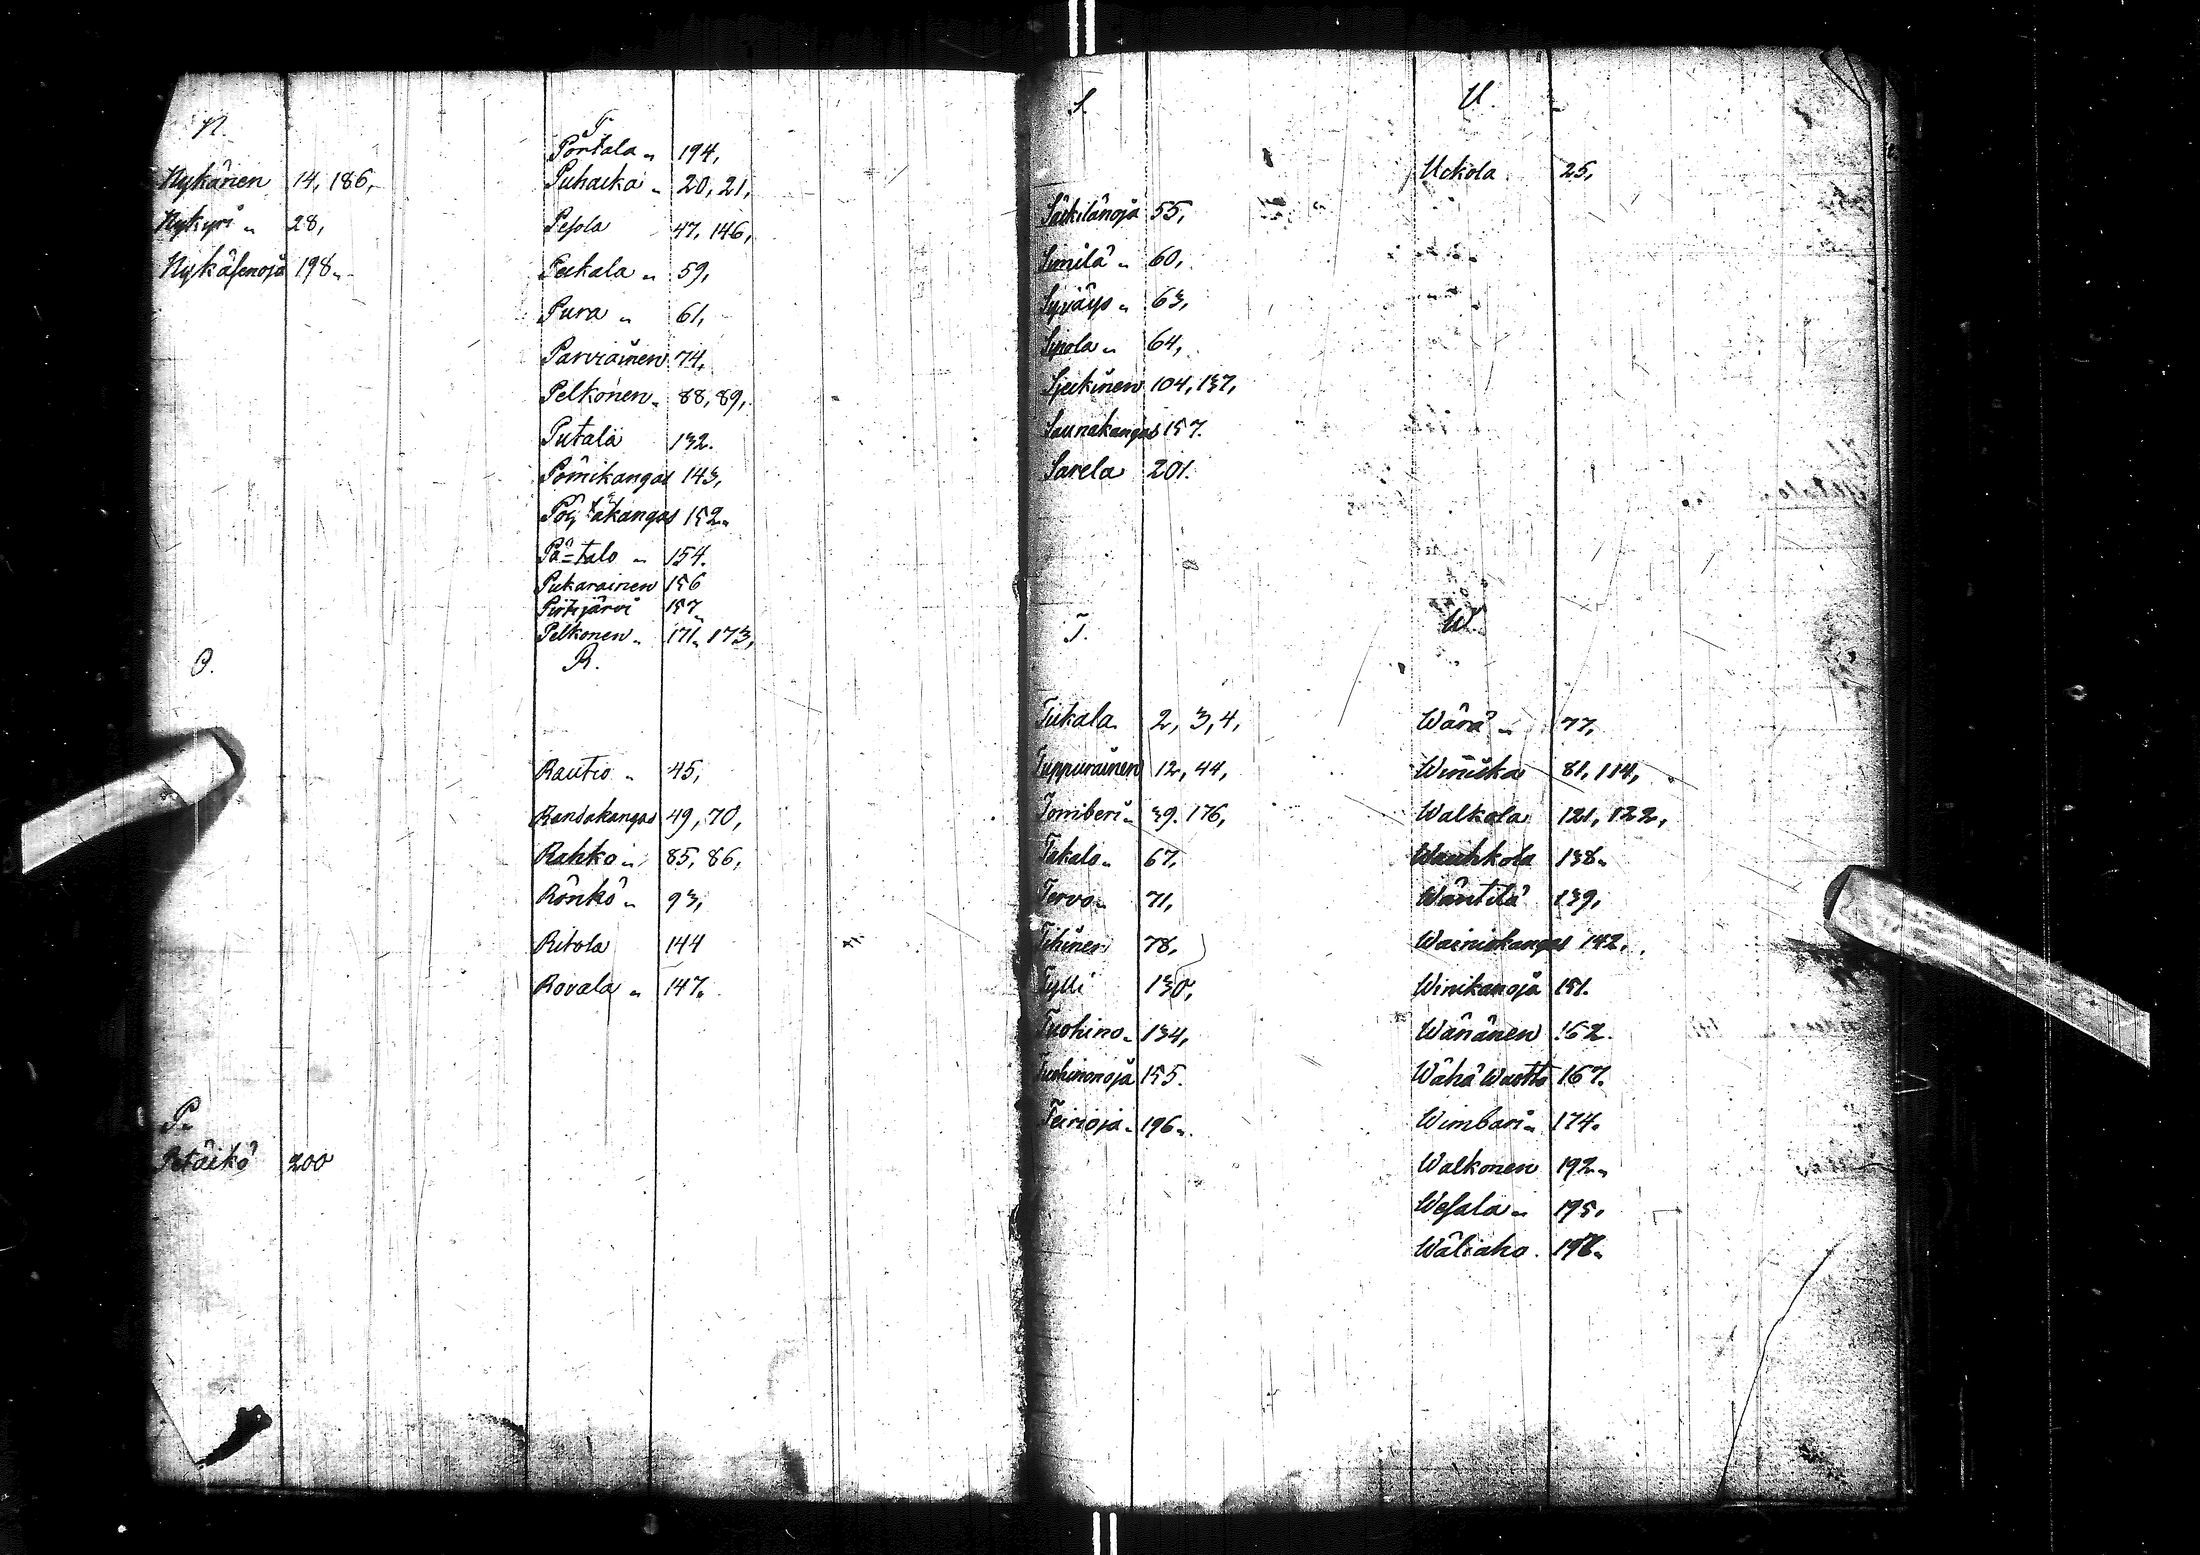 N.
Nykänen 14, 186,
Nykyri „ 28,
Nykäsenoja 198„
O.
P.
Petäikö 200
P.
Portala „ 194,
Puhacka „ 20, 21,
Pesola 47, 146,
Peekala „ 59,
Pura „ 61,
Parviainen 74,
Pelkonen „ 88, 89,
Putala 132.
Pömikangas 143,
152„
Pä=talo „ 154.
Pukarainen 156
157„
Pelkonen „ 171„ 173,
R.
Rautio „ 45,
Randakangas 49, 70,
Rahko „ 85, 86,
Rönkö „ 93,
Ritola 144
Rovala „ 147„
S.
Särkilänoja 55,
Simila „ 60,
Syväys „ 63,
Sipola „ 64,
104, 137,
Saunakangas 157.
Sarela 201.
T.
Tukala 2, 3, 4,
Tuppurainen 12, 44,
Tomberi „ 39. 176,
Takalo „ 67,
Tervo „ 71,
Tihinen 78,
Tylli 130,
Tuohino „ 134,
Tuohinonoja 155.
Teirioja „ 196„
U.
Uckola 25,
W.
Wärä „ 77,
Winiska 81, 114,
Walkola 121, 122,
Wauhkola 138„
Wäntilä 139,
Wainiokangas 142„
Winikanoja 151.
Wänänen 162.
Wähä Wuotto 167.
Wimbari „ 174.
Walkonen 192„
Wesala „ 195,
Wäliaho 198„